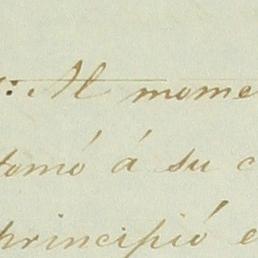 : Al mome
tomó á su c
principió e